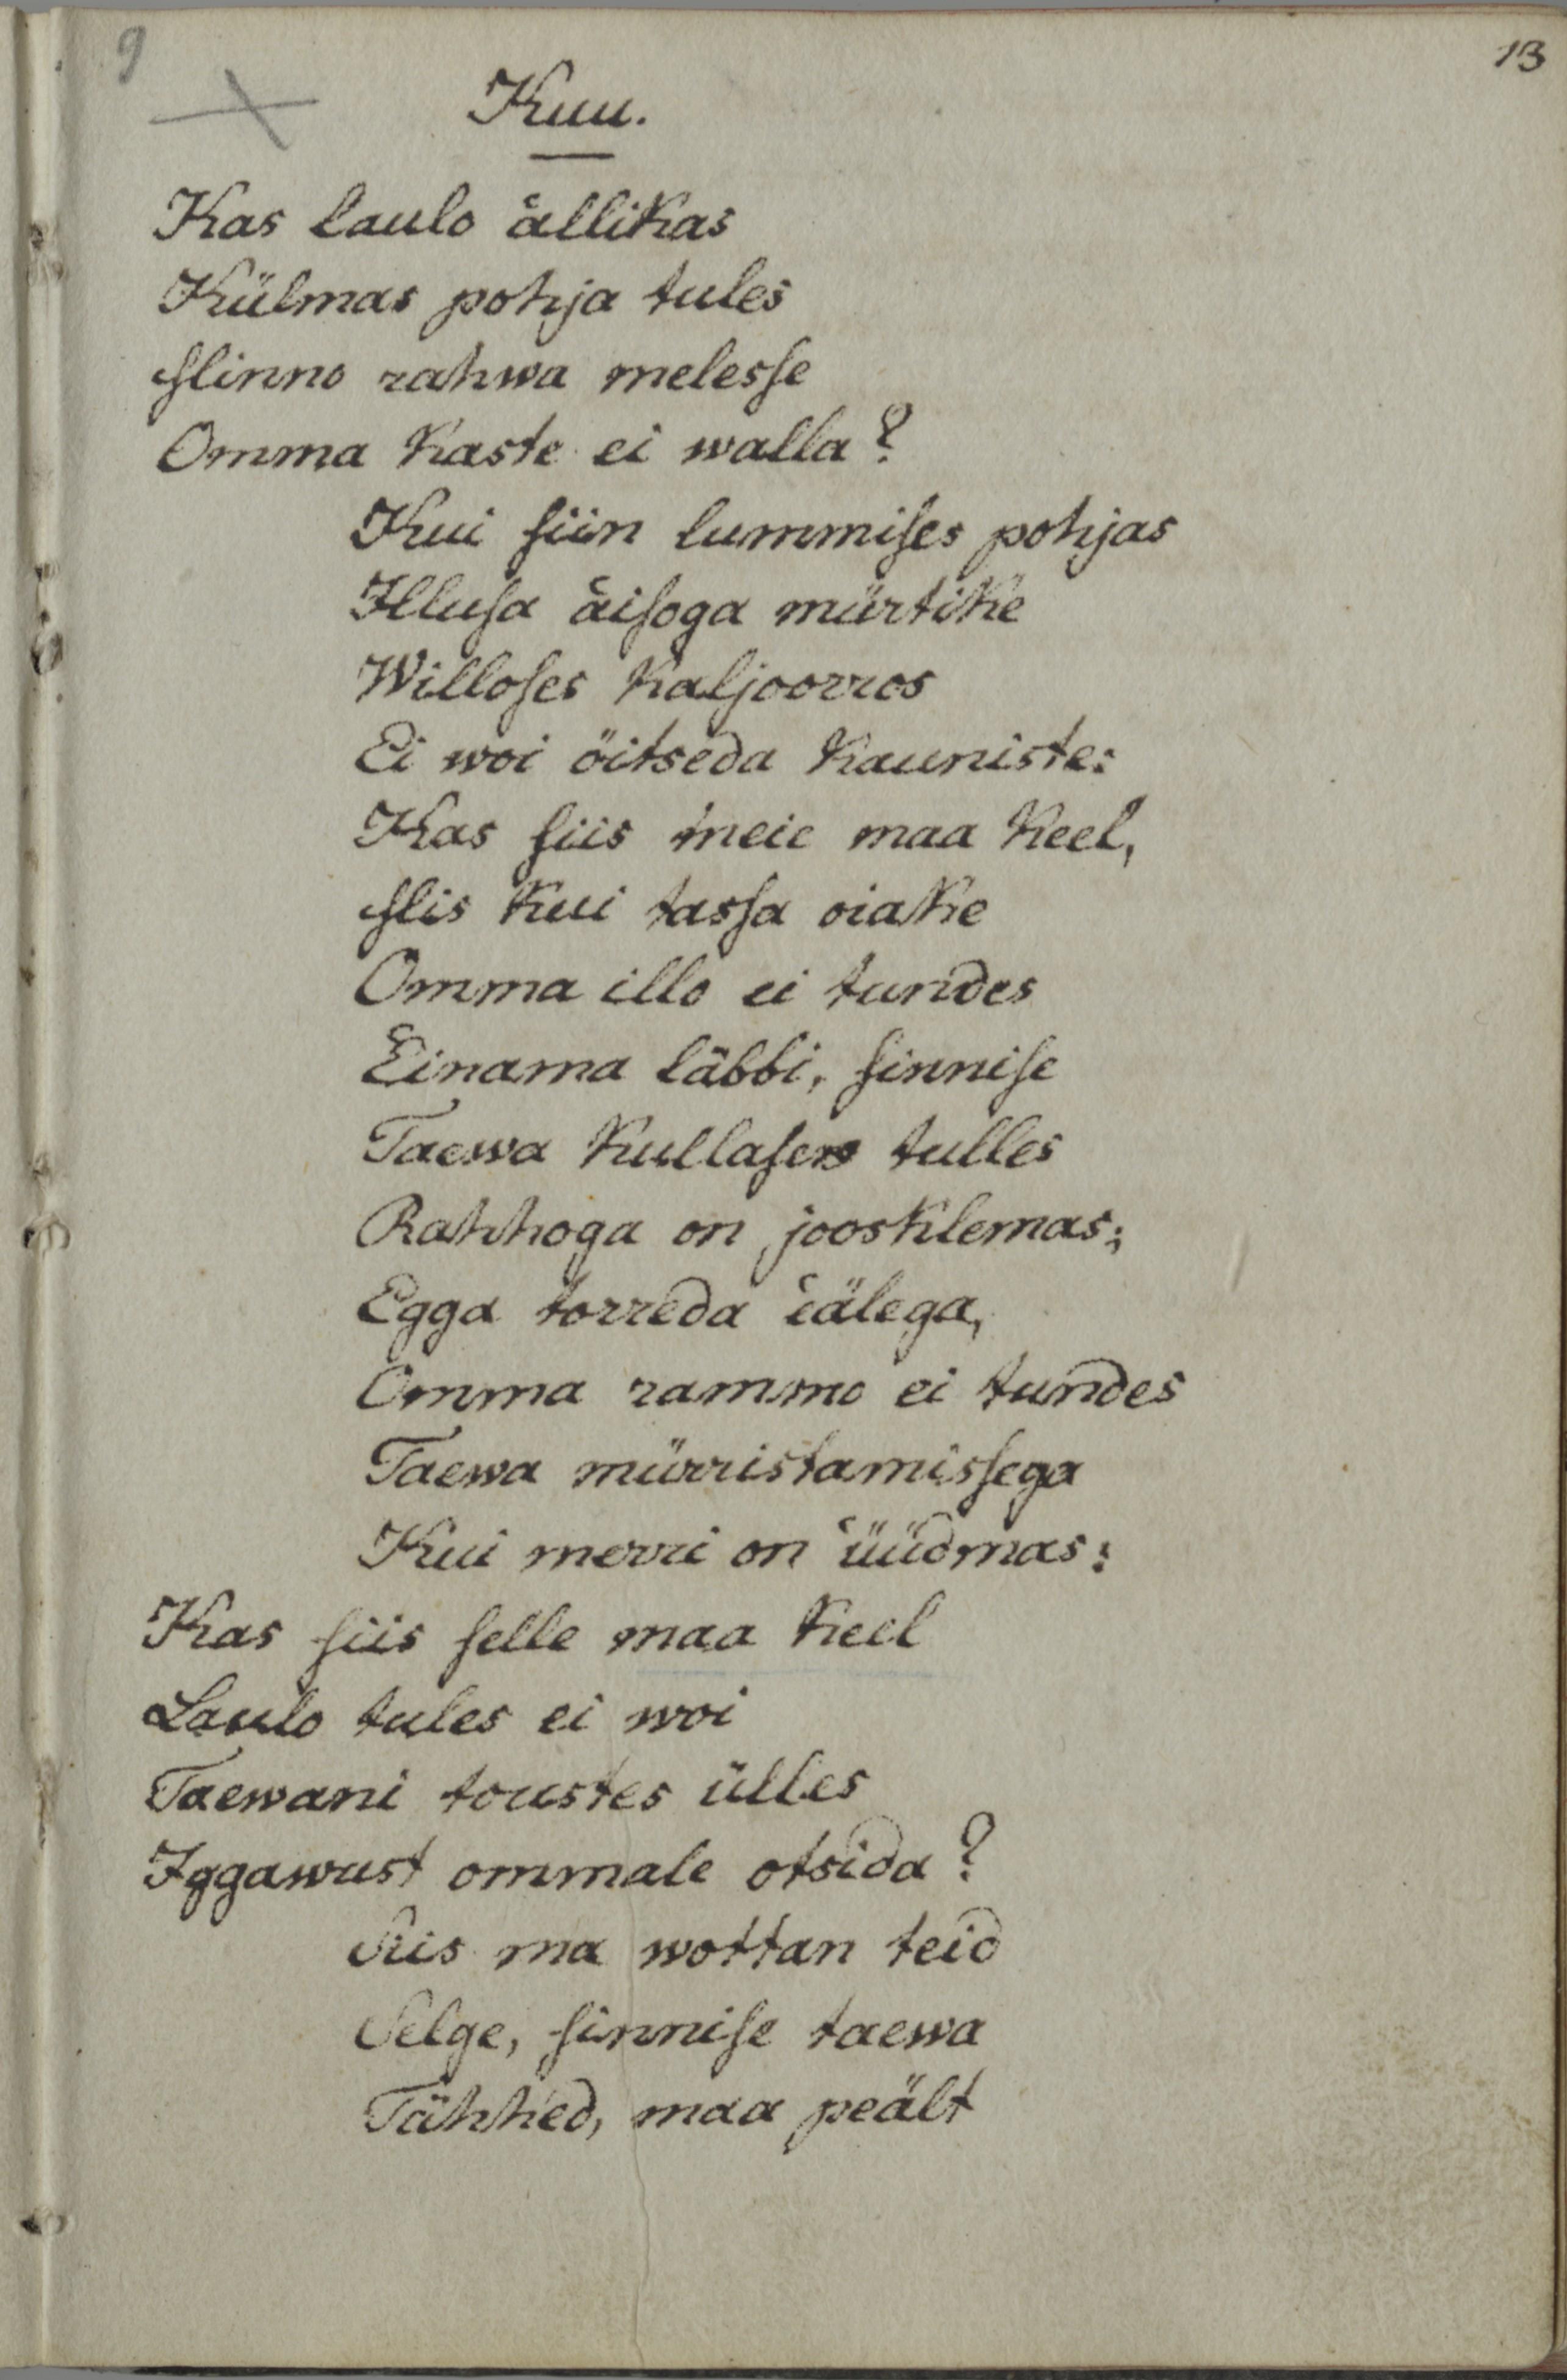 9
13
Kuu.
Kas laulo ällikas
Külmas pohja tules
Minno rahwa melesse
Omma kaste ei walla?
Kui siin lummises pohjas
Illusa äisoga mürtike
Willoses kaljoorros
Ei woi öitseda kauniste:
Kas siis meie maa keel,
Mis kui tassa oiake
Omma illo ei tundes
Einama läbbi, sinnise
Taewa kullases tulles
Rahhoga on jooksklemas;
Egga torreda eälega,
Omma rammo ei tundes
Taewa mürristamissega
Kui merri on üüdmas:
Kas siis selle maa keel
Laulo tules ei woi
Taewani toustes ülles
Iggawust ommale otsida?
Siis ma wottan teid
Selge, sinnise taewa
Tähhed, maa peält